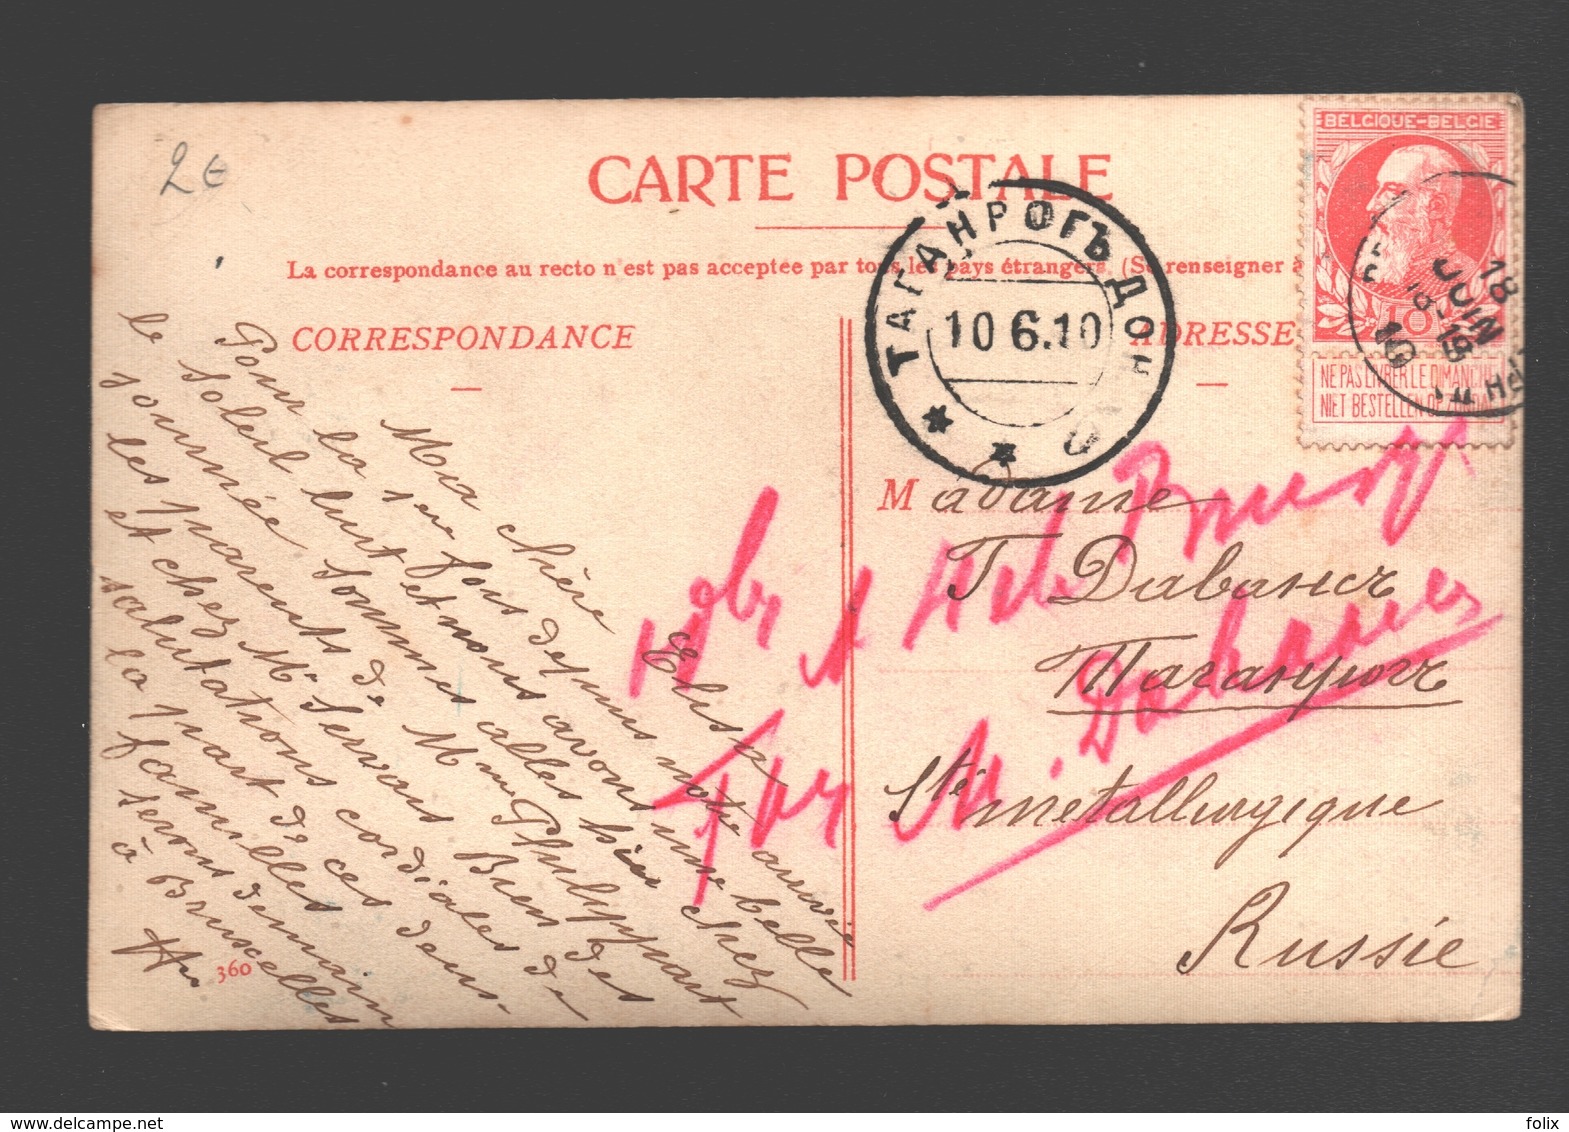 2€
CARTE POSTALE
La correspondance au recto n'est pas acceptée par tous les pays étrangers. (Se renseigner à
CORRESPONDANCE
ADRESSE
BELGIQUE-BELGIE
10
NE PAS LIVRER LE DIMANCHE
NIET BESTELLEN OP ZONDAG
18
JUIN
10
ТАГАНРОГЪ ДОН. О
10 6.10
Ma chère Elisa
Pour la 1ère fois depuis notre arrivée
le soleil luit et nous avons une belle
journée. Sommes allés hier chez
les parents de Mme Philippart
et chez Mr Servais. Bien des
salutations cordiales de
la part de ces deux
familles
serons demain
à Bruxelles
360
Madame
Г. Давансъ
Таганрогъ
Sté metallurgique
Russie